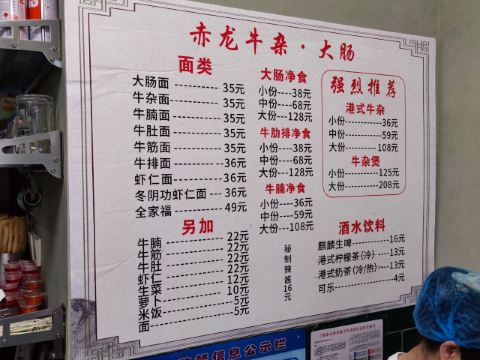 赤龙牛杂·大肠
面类
大肠面 ---------- 35元
牛杂面 ---------- 35元
牛腩面 ---------- 35元
牛肚面 ---------- 35元
牛筋面 ---------- 35元
牛排面 ---------- 36元
虾仁面 ---------- 36元
冬阴功虾仁面 --- 36元
全家福 ---------- 49元
另加
牛腩 ---------- 22元
牛筋 ---------- 22元
牛肚 ---------- 22元
虾仁 ---------- 12元
生菜 ---------- 10元
萝卜 ---------- 5元
米饭 ---------- 5元
面 ---------- 5元
大肠净食
小份----38元
中份----68元
大份---128元
牛肋排净食
小份----38元
中份----68元
大份---128元
牛腩净食
小份----36元
中份----59元
大份---108元
秘制辣酱16元
强烈推荐
港式牛杂
小份--------36元
中份--------59元
大份-------108元
牛杂煲
小份-------125元
大份-------208元
酒水饮料
麒麟生啤------16元
港式柠檬茶(冷)---13元
港式奶茶(冷/热)---13元
可乐----------4元
信息公示栏